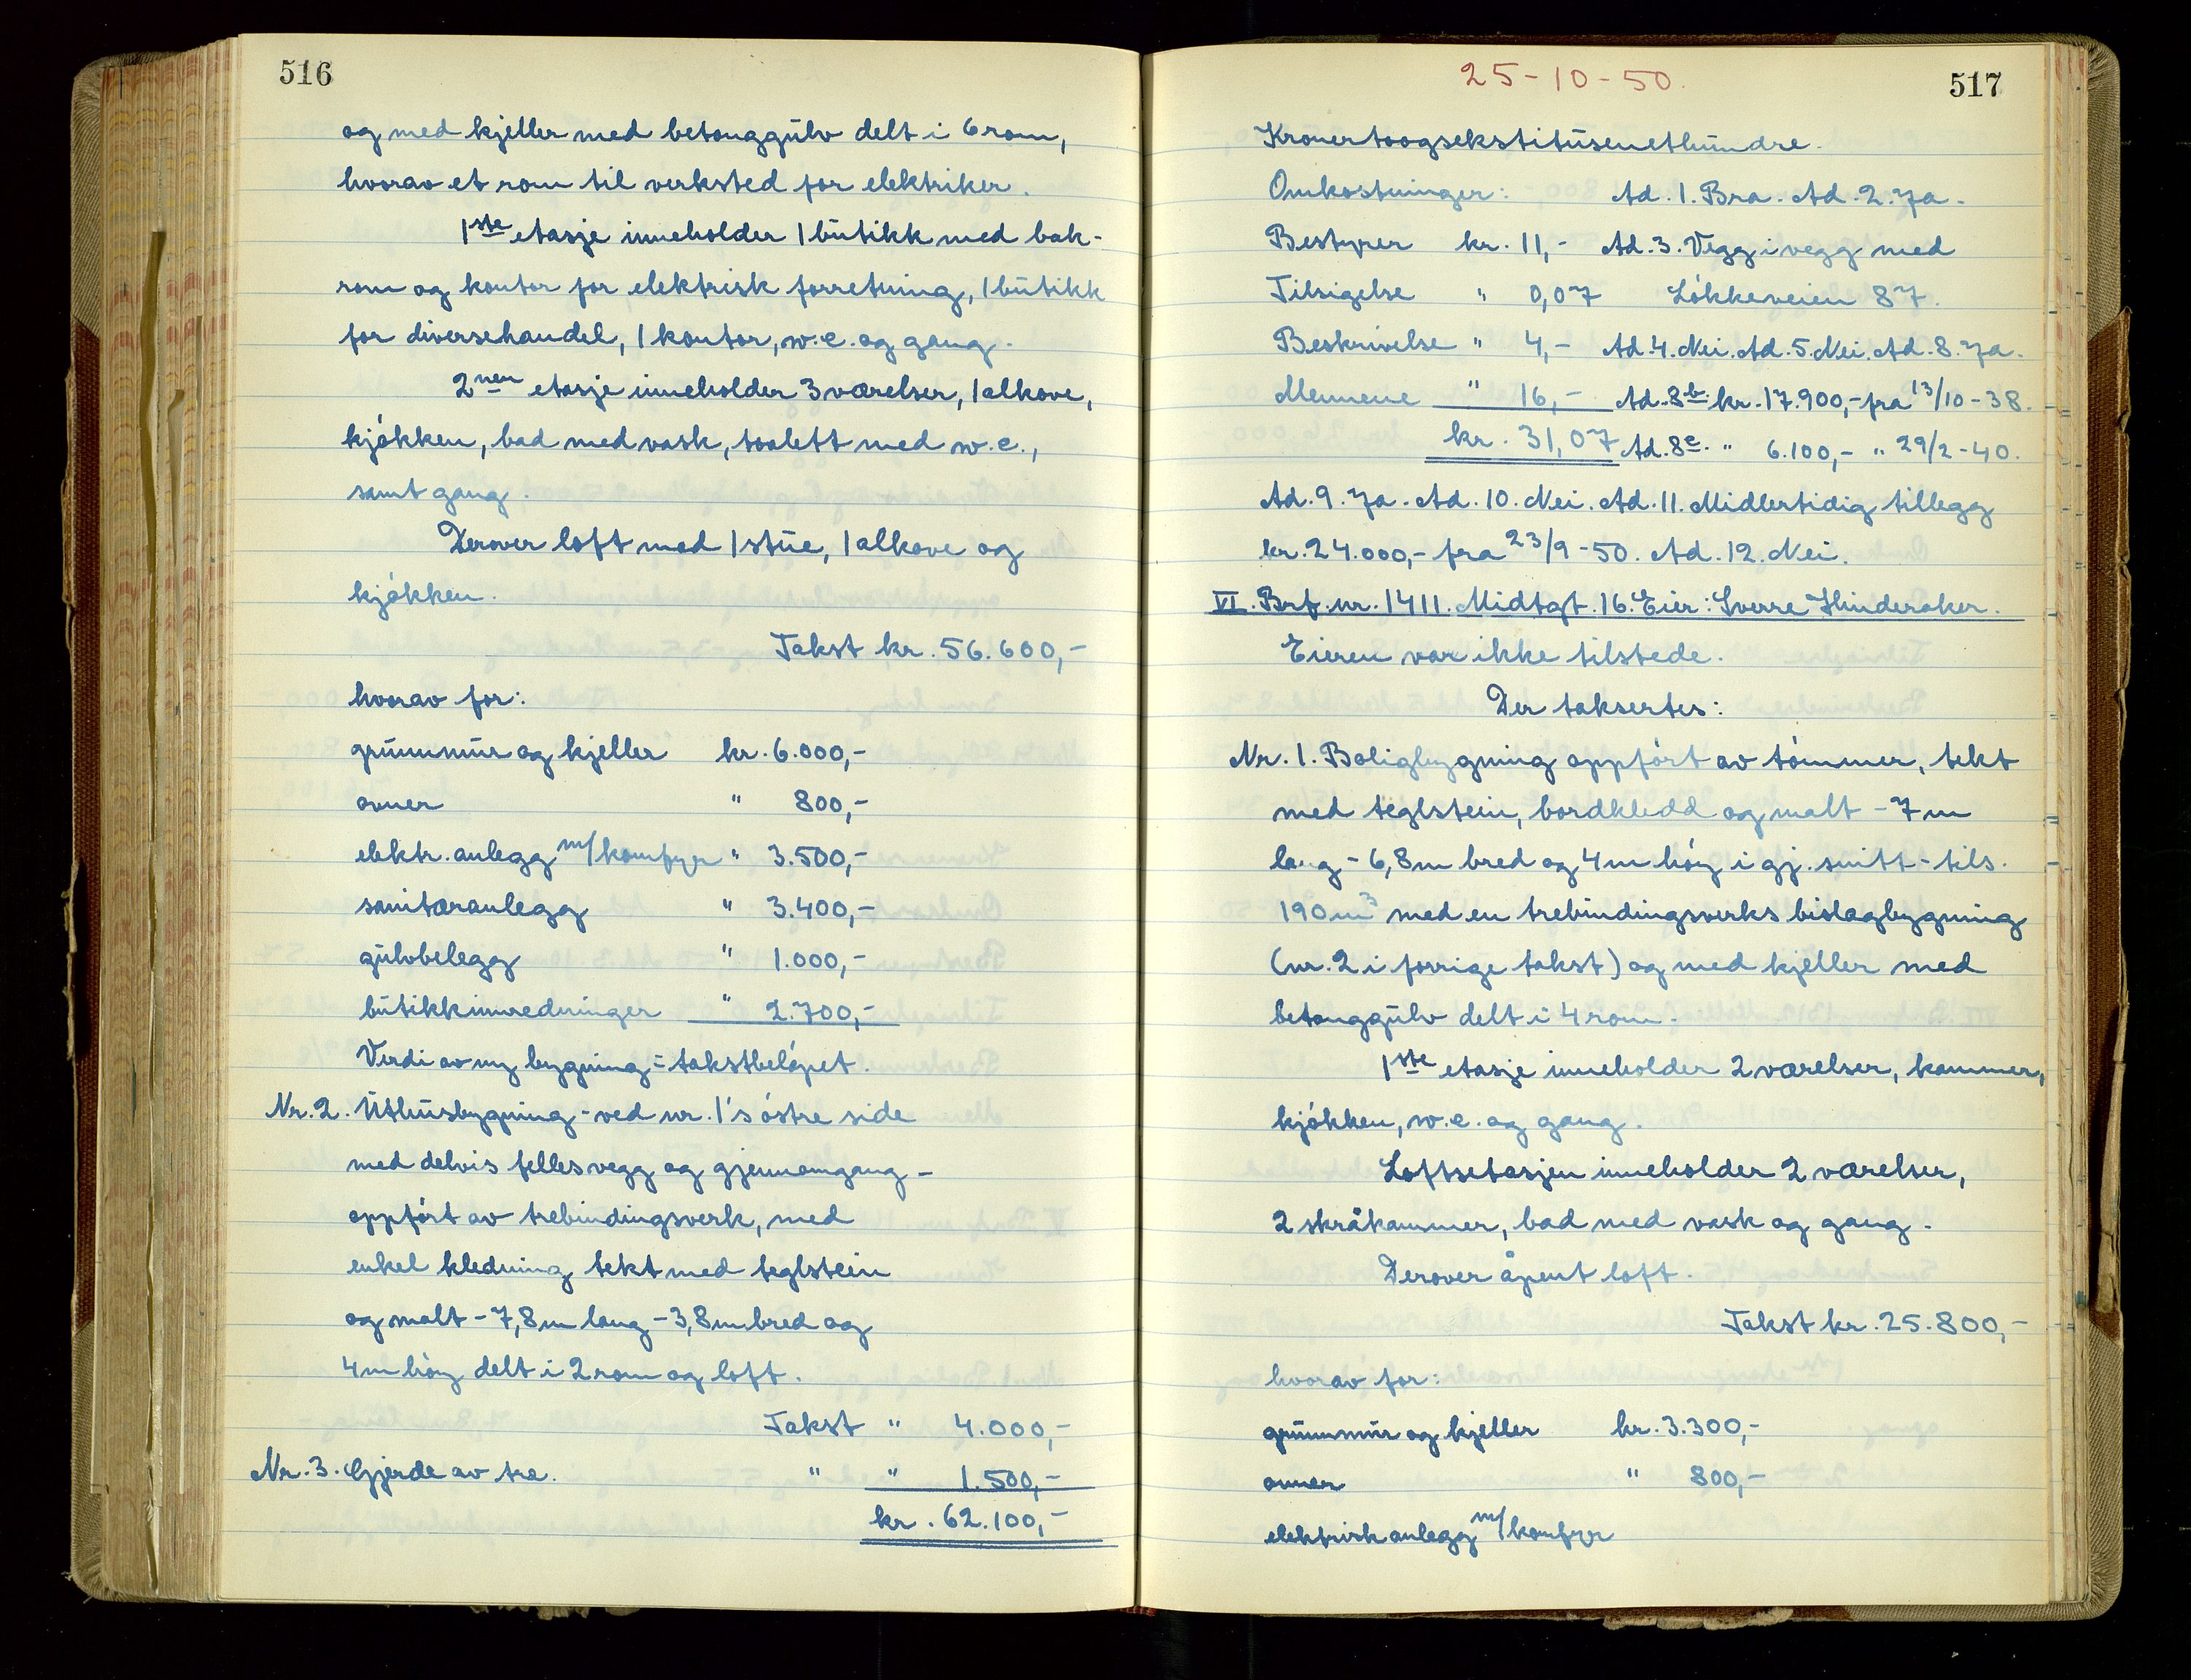 516
og med kjeller med betonggulv delt i 6 rom,
hvorav et rom til verksted for elektriker.
1ste etasje inneholder 1 butikk med bak-
rom og kontor for elektrisk forretning, 1 butikk
for diversehandel, 1 kontor, w.c. og gang.
2nen etasje inneholder 3 værelser, 1 alkove,
kjøkken, bad med vask, toalett med w.c.,
samt gang.
Derover loft med 1 stue, 1 alkove og
kjøkken.
Takst kr. 56.600,-
hvorav for:
grunnmur og kjeller kr. 6.000,-
ovner " 800,-
elektr. anlegg m/komfyr " 3.500,-
sanitæranlegg " 3.400,-
gulvbelegg " 1.000,-
butikkinnredninger " 2.700,-
Verdi av ny bygning = takstbeløpet.
Nr. 2. Uthusbygning - ved nr. 1's østre side
med delvis felles vegg og gjennomgang -
oppført av trebindingsverk, med
enkel kledning tekt med teglstein
og malt - 7,8 m lang - 3,8 m bred og
4 m høy delt i 2 rom og loft.
Takst " 4.000,-
Nr. 3. Gjerde av tre. " " 1.500,-
kr. 62.100,-
25-10-50.
517
Kronertoogsekstitusenethundre.
Omkostninger: Ad. 1. Bra. Ad. 2. Ja.
Bestyrer kr. 11,- Ad. 3. Vegg i vegg med
Tilsigelse " 0,07 Løkkeveien 87.
Beskrivelse " 4,- Ad. 4. Nei. Ad. 5. Nei. Ad. 8. Ja.
Mennene " 16,- Ad. 8b. kr. 17.900,- fra 13/10-38.
kr. 31,07 Ad. 8c. " 6.100,- " 29/2-40.
Ad. 9. Ja. Ad. 10. Nei. Ad. 11. Midlertidig tillegg
kr. 24.000,- fra 23/9-50. Ad. 12. Nei.
VI. Brf. nr. 1411. Midtgt. 16. Eier: Sverre Hinderaker.
Eieren var ikke tilstede.
Der taksertes:
Nr. 1. Boligbygning oppført av tømmer, tekt
med teglstein, bordkledd og malt - 7 m
lang - 6,8 m bred og 4 m høy i gj. snitt - tils.
190 m3 med en trebindingsverks bislagbygning
(nr. 2 i forrige takst) og med kjeller med
betonggulv delt i 4 rom.
1ste etasje inneholder 2 værelser, kammer,
kjøkken, w.c. og gang.
Loftsetasjen inneholder 2 værelser,
2 skråkammer, bad med vask og gang.
Derover åpent loft.
Takst kr. 25.800,-
hvorav for:
grunnmur og kjeller kr. 3.300,-
ovner " 800,-
elektrisk anlegg m/komfyr